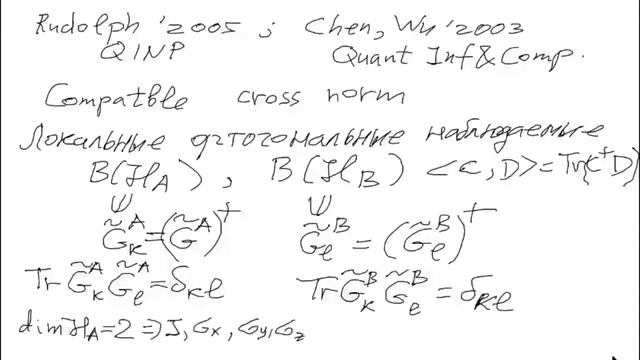 Rudolph '2005 ; Chen, Wu '2003
QINP Quant Inf & Comp.
Compatble cross norm
Локальные ортогональные наблюдаемые
B(ℋ_A) , B(ℋ_B) <C, D> = Tr(C⁺D)
∪ ∪
G̃_k^A = (G̃^A)⁺ G̃_l^B = (G̃_l^B)⁺
Tr G̃_k^A G̃_l^A = δ_kl Tr G̃_k^B G̃_l^B = δ_kl
dim ℋ_A = 2 ⇒ I, σ_x, σ_y, σ_z